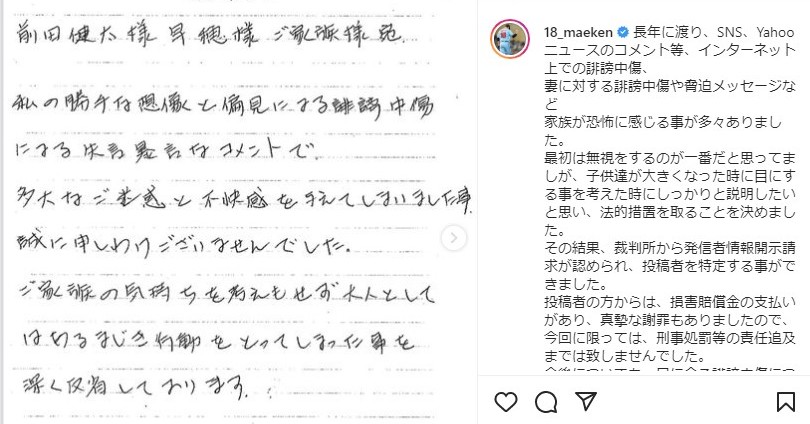 前田健太様 早穂様 ご家族様宛
私の勝手な想像と偏見による誹謗中傷
による失言暴言なコメントで、
多大なご迷惑と不快感を与えてしまいました事
誠に申しわけございませんでした。
ご家族の気持ちを考えもせず大人として
はあるまじき行動をとってしまった事を
深く反省しております。
18_maeken 長年に渡り、SNS、Yahoo
ニュースのコメント等、インターネット
上での誹謗中傷、
妻に対する誹謗中傷や脅迫メッセージな
ど
家族が恐怖に感じる事が多々ありまし
た。
最初は無視をするのが一番だと思ってま
しが、子供達が大きくなった時に目にす
る事を考えた時にしっかりと説明したい
と思い、法的措置を取ることを決めまし
た。
その結果、裁判所から発信者情報開示請
求が認められ、投稿者を特定する事がで
きました。
投稿者の方からは、損害賠償金の支払い
があり、真摯な謝罪もありましたので、
今回に限っては、刑事処罰等の責任追及
までは致しませんでした。